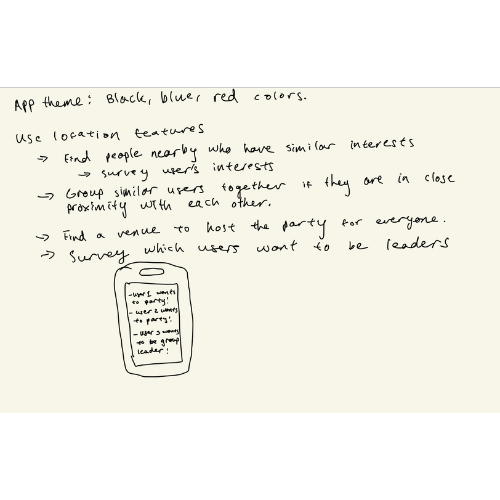 App theme: Black, blue, red colors.
Use location features
→ Find people nearby who have similar interests
→ survey user's interests
→ Group similar users together if they are in close
proximity with each other.
→ Find a venue to host the party for everyone.
→ Survey which users want to be leaders
- user 1 wants
to party!
- user 2 wants
to party!
- user 3 wants
to be group
leader!